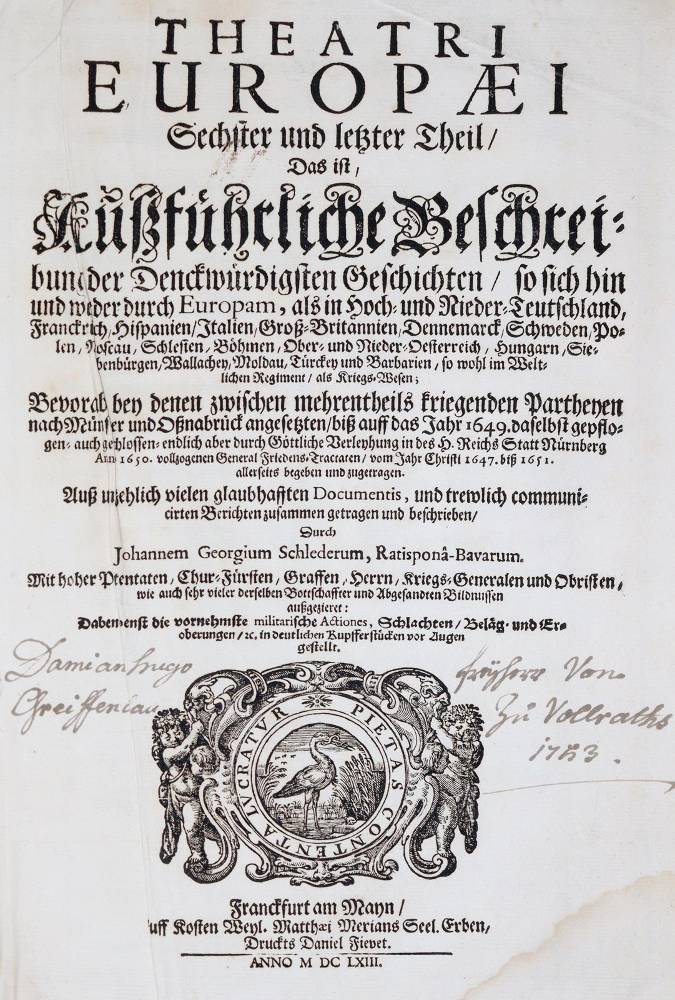 THEATRI
EUROPÆI
Sechster und letzter Theil/
Das ist,
Außführliche Beschrei-
bung der Denckwürdigsten Geschichten / so sich hin
und weder durch Europam, als in Hoch- und Nieder-Teutschland,
Franckrich, Hispanien/Italien, Groß-Britannien, Dennemarck, Schweden, Po-
len, Moscau, Schlesien, Böhmen, Ober- und Nieder-Oesterreich, Hungarn, Sie-
benbürgen, Wallachey, Moldau, Türckey und Barbarien, so wohl im Welt-
lichen Regiment / als Kriegs-Wesen;
Bevorab bey denen zwischen mehrentheils kriegenden Partheyen
nach Münster und Oßnabrück angesetzten/biß auff das Jahr 1649. daselbst gepflo-
gen- auch geschlossen- endlich aber durch Göttliche Verleyhung in des H. Reichs Statt Nürnberg
Anno 1650. vollzogenen General Friedens-Tractaten / vom Jahr Christi 1647. biß 1651.
allerseits begeben und zugetragen.
Auß unzehlich vielen glaubhafften Documentis, und trewlich communi-
cirten Berichten zusammen getragen und beschrieben/
Durch
Johannem Georgium Schlederum, Ratisponâ-Bavarum.
Mit hoher Ptentaten, Chur-Fürsten, Graffen, Herrn, Kriegs-Generalen und Obristen,
wie auch sehr vieler derselben Bottschaffter und Abgesandten Bildnussen
außgezieret:
Dabenenst die vornehmste militarische Actiones, Schlachten / Beläg- und Er-
oberungen /ꝛc. in deutlichen Kupfferstücken vor Augen
gestellt.
Damianhugo
Greiffenlau
freyherr Von
Zu Vollraths
1753.
PIETAS CONTENTA LUCRATVR
Franckfurt am Mayn/
uff Kosten Weyl. Matthæi Merians Seel. Erben,
Druckts Daniel Fievet.
ANNO M DC LXIII.